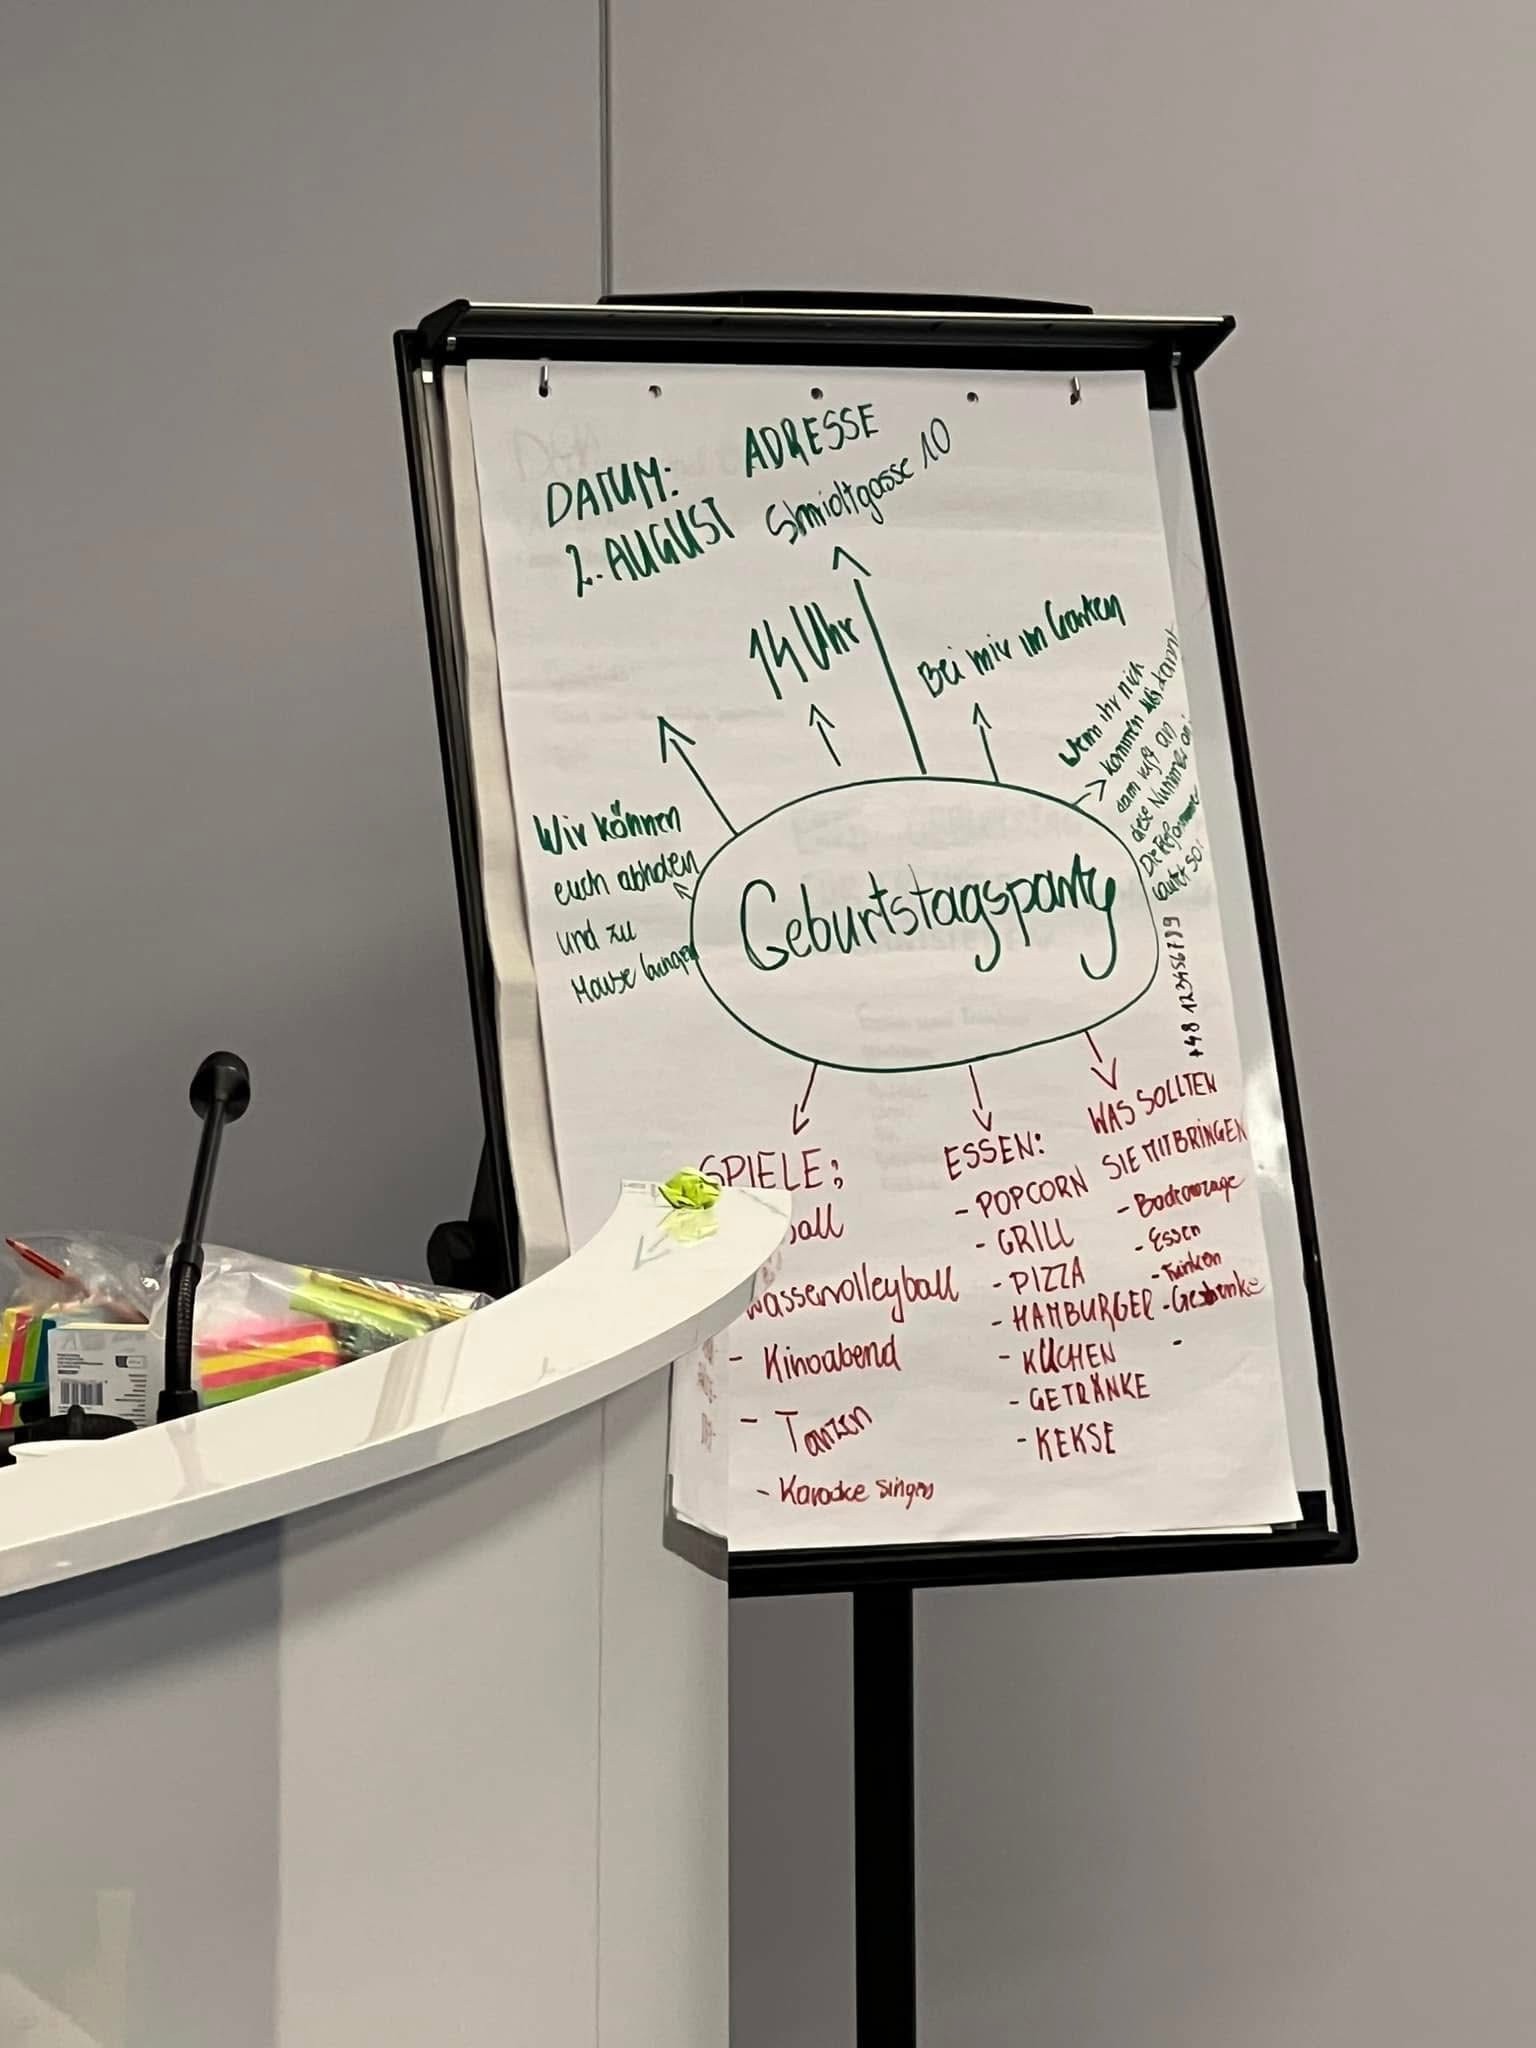 DATUM:
2. AUGUST
ADRESSE
14 Uhr
Bei mir im Garten
Wir können
euch abholen
und zu
Hause bringen
Wenn ihr nich
kommen
dann ruft an
diese Nummer an!
Die
lautet so:
+48 123456789
Geburtstagsparty
SPIELE:
ball
Wasservolleyball
- Kinoabend
- Tanzen
- Karaoke singen
ESSEN:
- POPCORN
- GRILL
- PIZZA
- HAMBURGER
- KUCHEN
- GETRÄNKE
- KEKSE
WAS SOLLTEN
SIE MITBRINGEN
- Badeanzuge
- Essen
- Trinken
- Geschenke
-